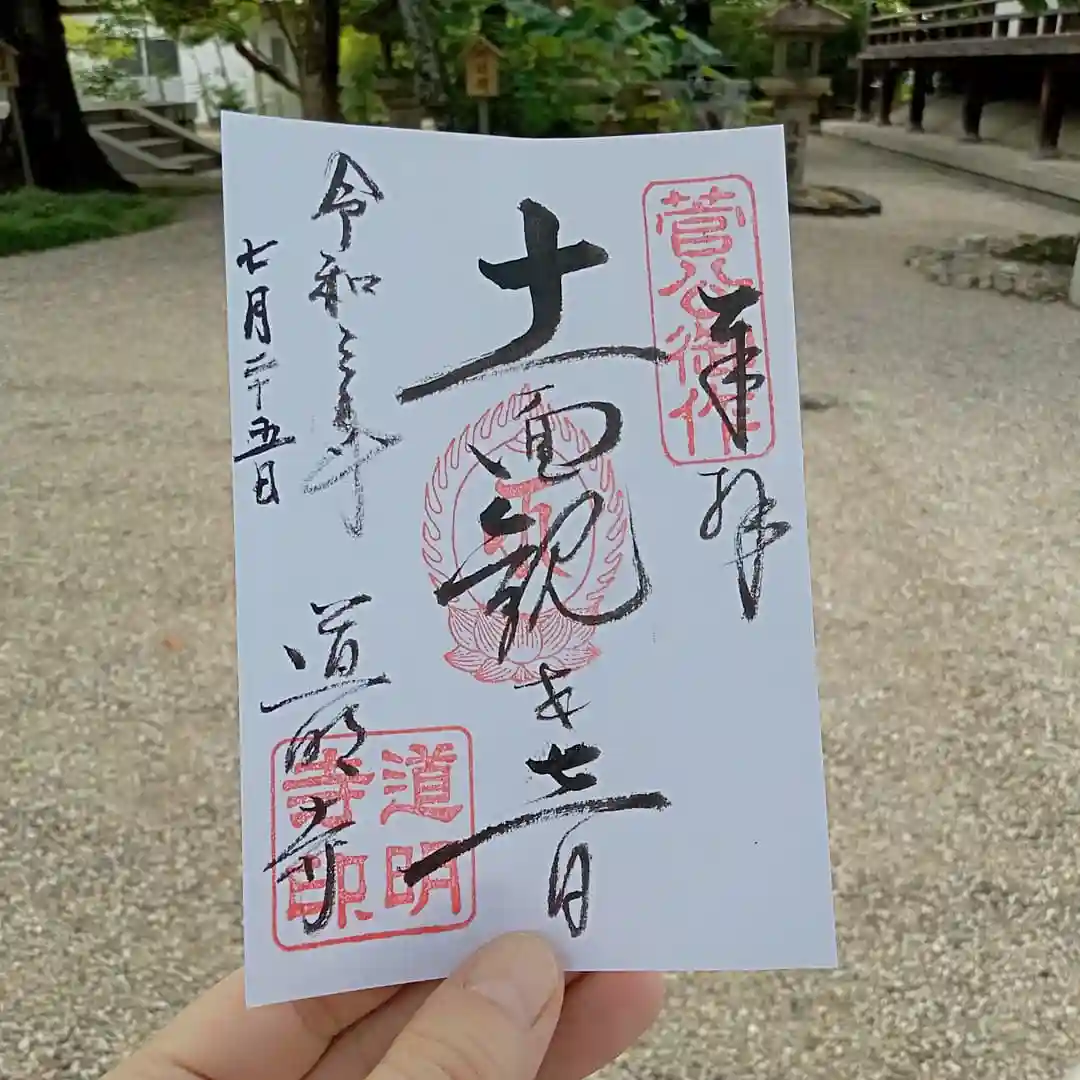 菅公御作
奉拝
十一面観世音
令和三年
七月二十五日
道明寺
道明寺印